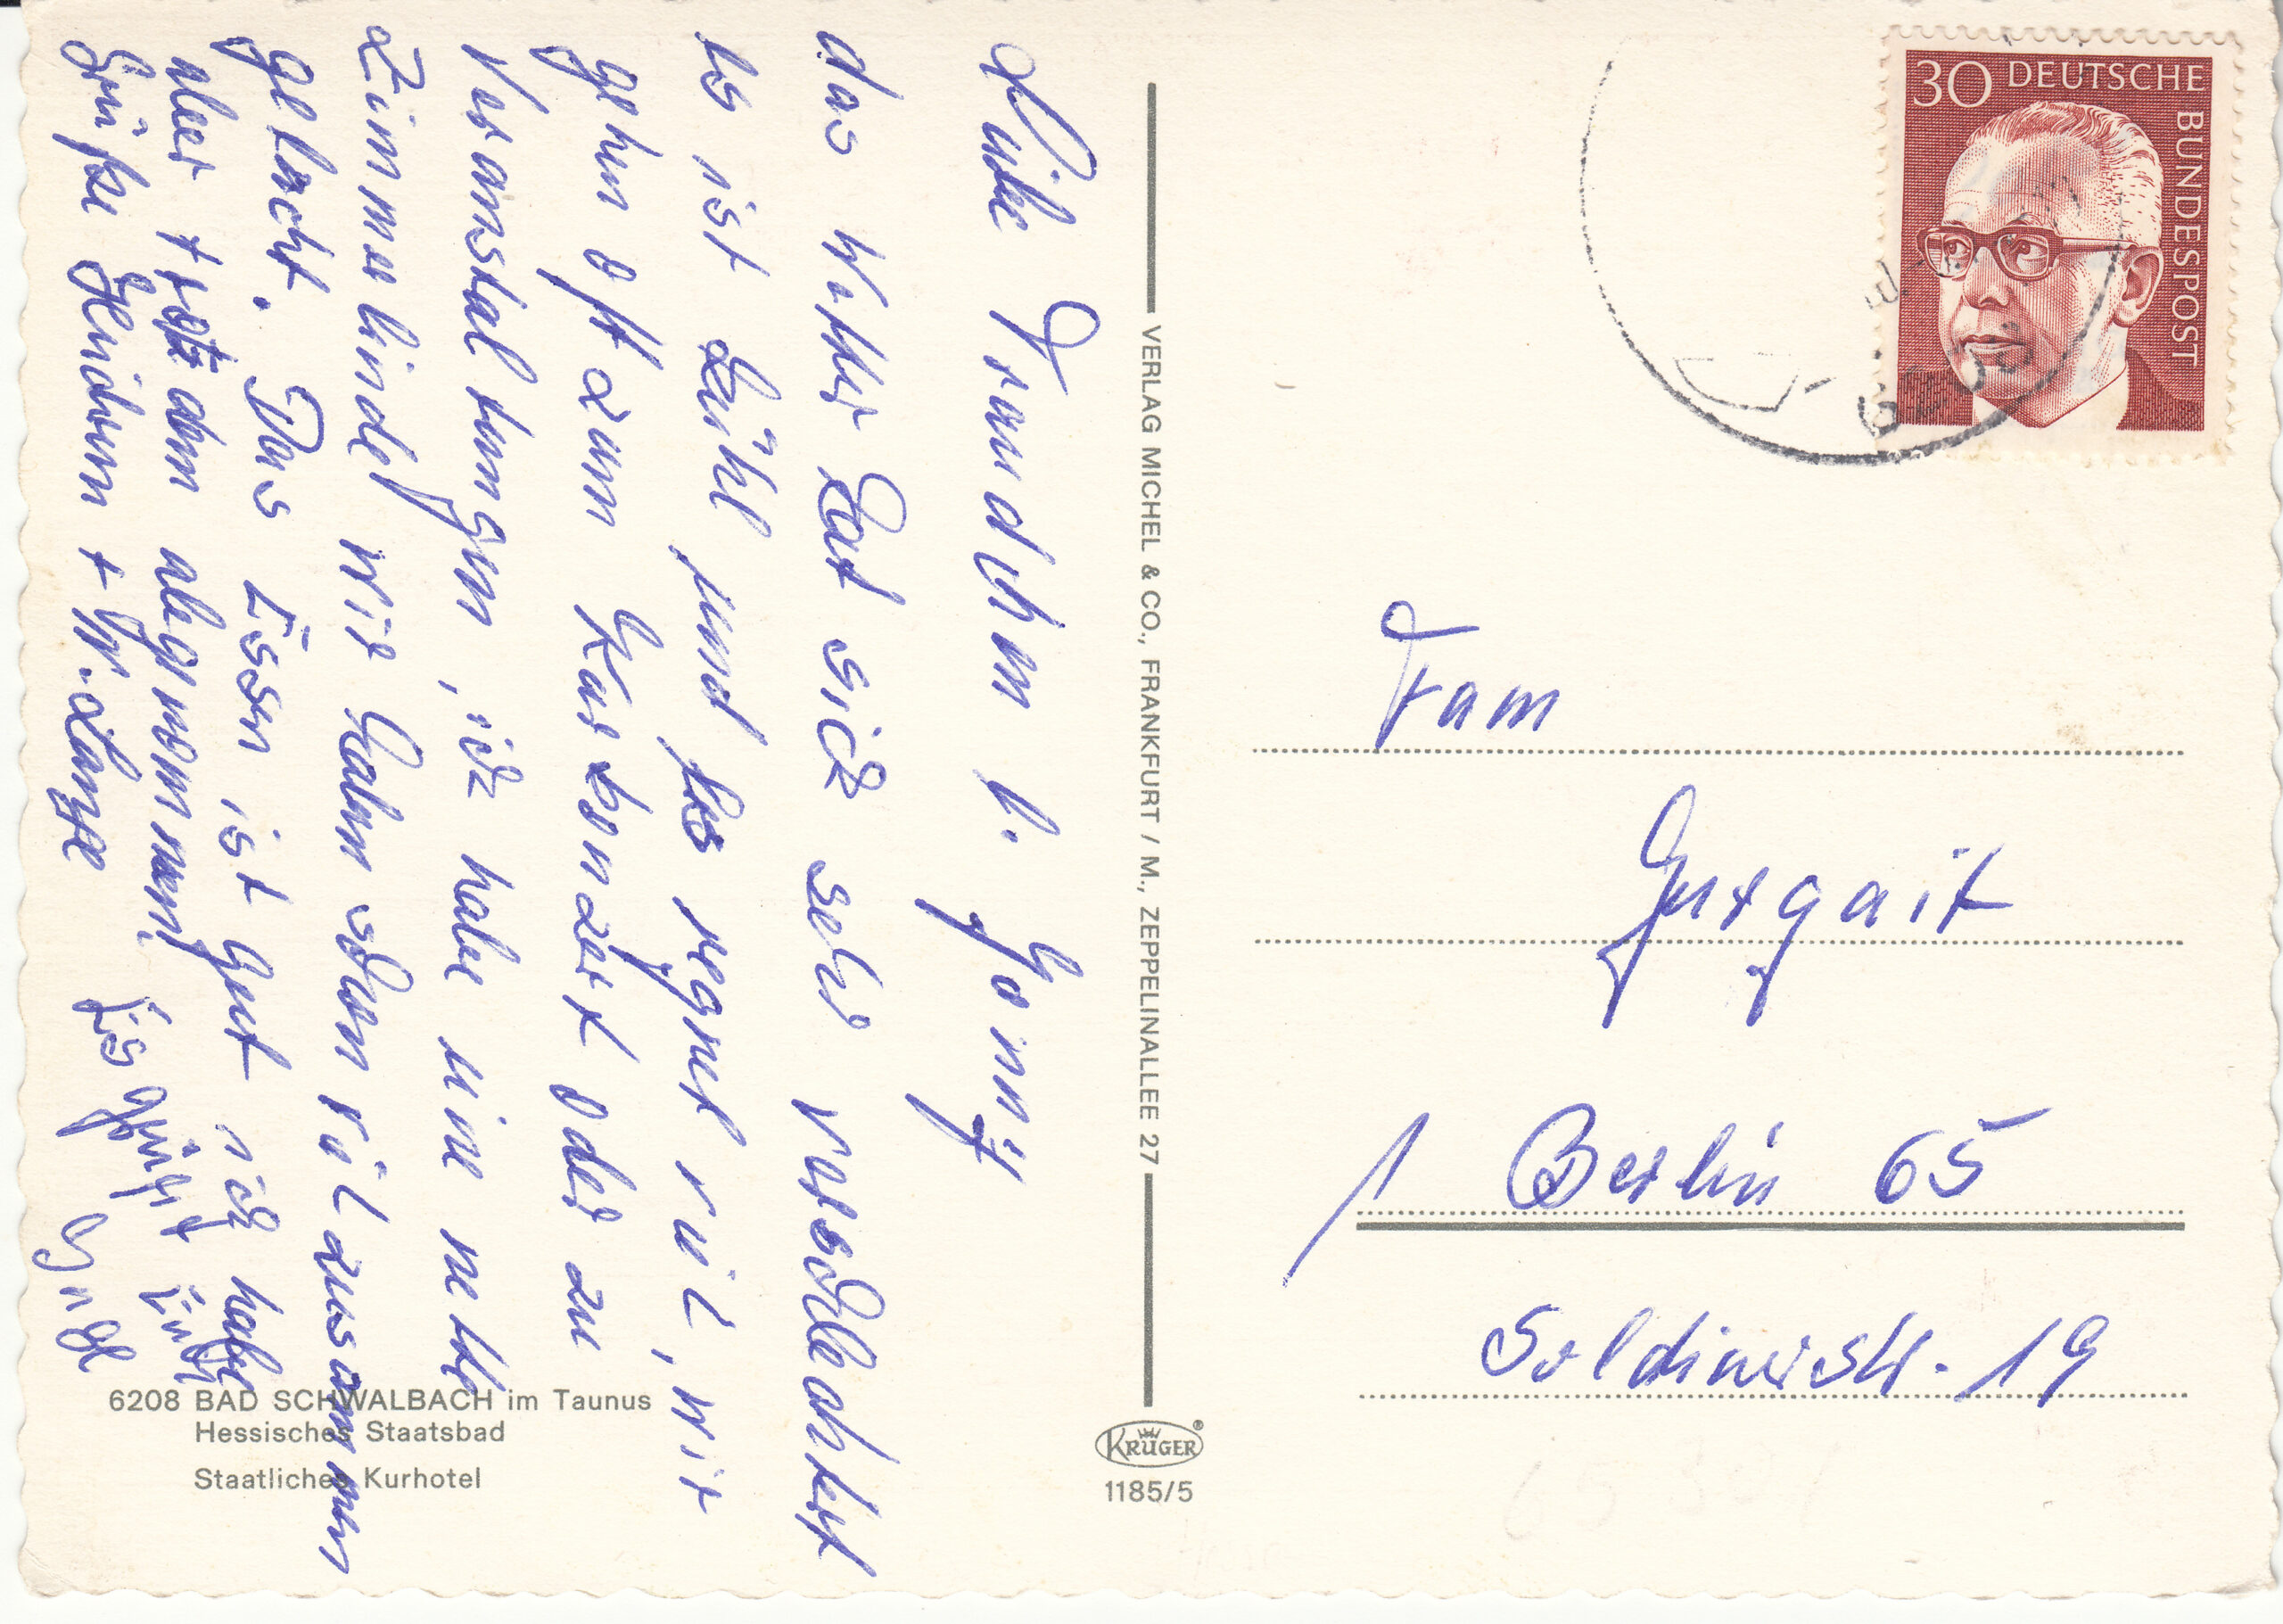 Liebe Frau ch m f. Gonny
das Wetter hat sich sehr verschlechtert
Es ist kühl und es regnet viel, wir
gehen oft zum Kurkonzert oder zu
Veranstaltungen, ich habe eine nette
Zimmerlinde wir haben schon viel zusammen
gelacht. Das Essen ist gut ich habe
aber trotzdem abgenommen!
Grüße Heidrun + W. Lange
Es grüßt
30 DEUTSCHE BUNDESPOST
VERLAG MICHEL & CO., FRANKFURT / M., ZEPPELINALLEE 27
Fam
Gurgait
1 Berlin 65
Soldinerstr. 19
6208 BAD SCHWALBACH im Taunus
Hessisches Staatsbad
Staatliches Kurhotel
KRÜGER®
1185/5